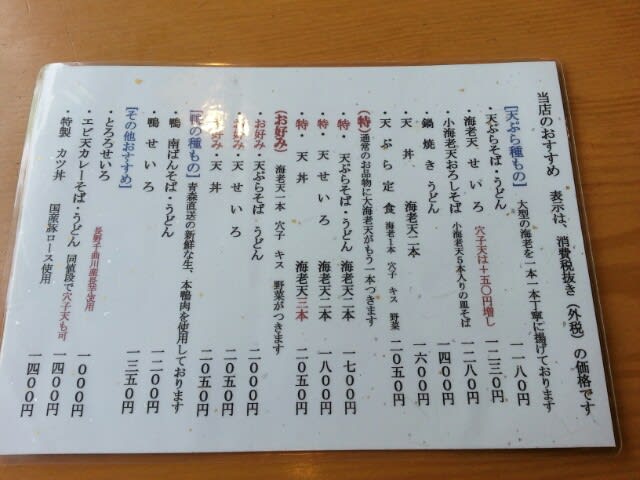 当店のおすすめ 表示は、消費税抜き(外税)の価格です
【天ぷら種もの】 大型の海老を一本一本丁寧に揚げております
・天ぷらそば・うどん 穴子天は+五〇円増し 一一八〇円
・海老天 せいろ 一二三〇円
・小海老天おろしそば 小海老天5本入りの皿そば 一二八〇円
・鍋焼き うどん 一四〇〇円
・天 丼 海老天二本 一六〇〇円
・天 ぷら 定 食 海老1本 穴子 キス 野菜 二〇五〇円
(特)通常のお品物に大海老天がもう一本つきます
・特・天ぷらそば・うどん 海老天二本 一七〇〇円
・特・天 せ い ろ 海老天二本 一八〇〇円
・特・天 丼 海老天三本 二〇五〇円
(お好み) 海老天一本 穴子 キス 野菜がつきます
・お好み・天ぷらそば うどん 二〇〇〇円
・お好み・天 せ い ろ 二〇五〇円
・お好み・天 丼 二〇五〇円
【鴨の種もの】 青森直送の新鮮な生、本鴨肉を使用しております
・鴨 南ばんそば・うどん 一二〇〇円
・鴨 せ い ろ 一三五〇円
【その他おすすめ】
・とろろせいろ 長野千曲川産長芋使用 一〇〇〇円
・エビ天カレーそば・うどん 同値段で穴子天も可 一四〇〇円
・特製 カツ丼 国産豚ロース使用 一四〇〇円